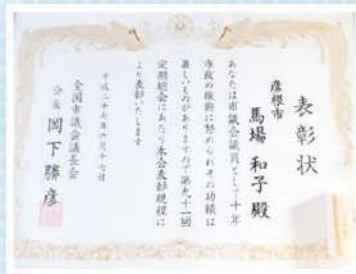 表彰状
彦根市
馬場和子殿
あなたは市議会議員として十年
市政の振興に努められその功績は
著しいものがありますので第九十一回
定期総会にあたり本会表彰規程に
より表彰いたします
平成二十七年六月十七日
全国市議会議長会
会長 岡下勝彦